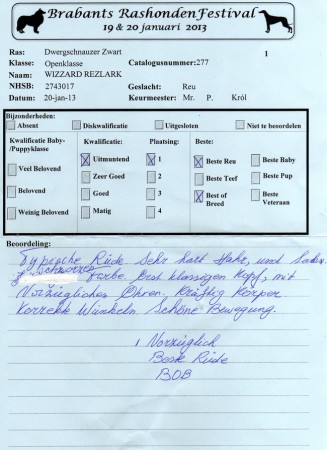 Brabants Rashonden Festival
19 & 20 januari 2013
Ras: Dwergschnauzer Zwart 1
Klasse: Openklasse Catalogusnummer: 277
Naam: WIZZARD REZLARK
NHSB: 2743017 Geslacht: Reu
Datum: 20-jan-13 Keurmeester: Mr. P. Król
Bijzonderheden:
Absent Diskwalificatie Uitgesloten Niet te beoordelen
Kwalificatie Baby-/Puppyklasse Kwalificatie: Plaatsing: Beste:
X Uitmuntend X 1 X Beste Reu Beste Baby
Veel Belovend Zeer Goed 2 Beste Teef Beste Pup
Belovend Goed 3 X Best of Breed Beste Veteraan
Weinig Belovend Matig 4
Beoordeling:
Typische Rüde Sehr hart Hahr, und
schwarze Farbe Erst klassigen Kopf, mit
Vorzügliches Ohren. Kräftig Körper.
Korrekte Winkeln Schöne Bewegung.
1 Vorzüglich
Beste Rüde
BOB